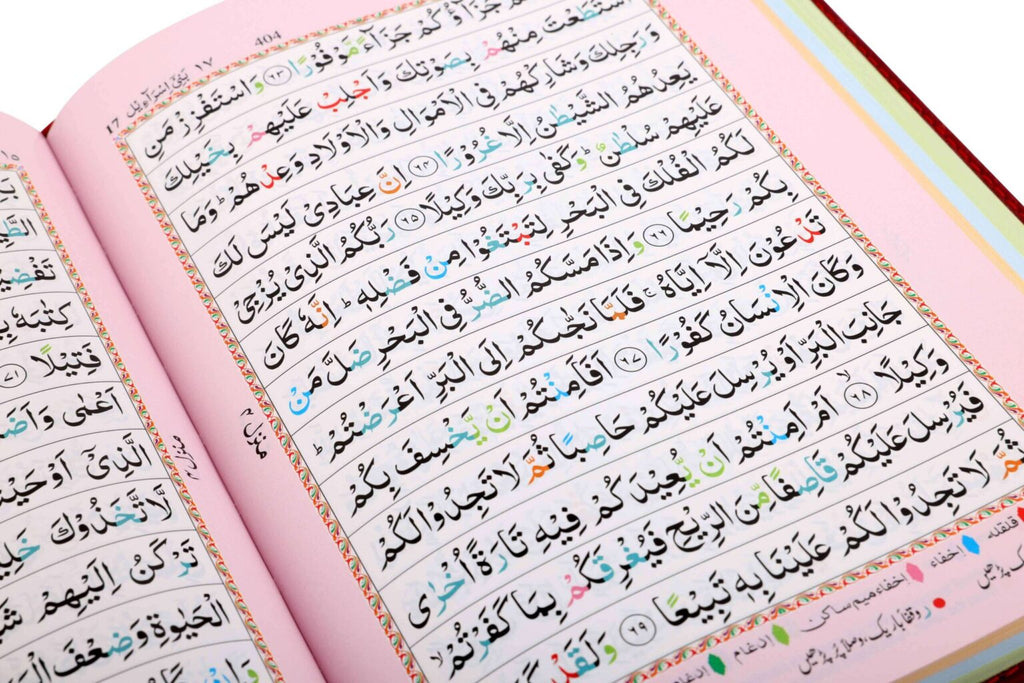 17 بَنِیْٓ اِسْرَآءِیْل ١٧
404
جَزَآؤُكُمْ جَزَآءً مَّوْفُوْرًا ۝۶۳ وَاسْتَفْزِزْ مَنِ
اسْتَطَعْتَ مِنْهُمْ بِصَوْتِكَ وَاَجْلِبْ عَلَيْهِمْ بِخَيْلِكَ
وَرَجِلِكَ وَشَارِكْهُمْ فِی الْاَمْوَالِ وَالْاَوْلَادِ وَعِدْهُمْ ؕ وَمَا
يَعِدُهُمُ الشَّيْطٰنُ اِلَّا غُرُوْرًا ۝۶۴ اِنَّ عِبَادِیْ لَيْسَ لَكَ
عَلَيْهِمْ سُلْطٰنٌ ؕ وَكَفٰی بِرَبِّكَ وَكِيْلًا ۝۶۵ رَبُّكُمُ الَّذِیْ يُزْجِیْ
لَكُمُ الْفُلْكَ فِی الْبَحْرِ لِتَبْتَغُوْا مِنْ فَضْلِهٖ ؕ اِنَّهٗ كَانَ
بِكُمْ رَحِيْمًا ۝۶۶ وَاِذَا مَسَّكُمُ الضُّرُّ فِی الْبَحْرِ ضَلَّ مَنْ
تَدْعُوْنَ اِلَّاۤ اِيَّاهُ ۚ فَلَمَّا نَجّٰىكُمْ اِلَی الْبَرِّ اَعْرَضْتُمْ ؕ
وَكَانَ الْاِنْسَانُ كَفُوْرًا ۝۶۷ اَفَاَمِنْتُمْ اَنْ يَّخْسِفَ بِكُمْ
جَانِبَ الْبَرِّ اَوْ يُرْسِلَ عَلَيْكُمْ حَاصِبًا ثُمَّ لَا تَجِدُوْا لَكُمْ
وَكِيْلًا ۙ۝۶۸ اَمْ اَمِنْتُمْ اَنْ يُّعِيْدَكُمْ فِيْهِ تَارَةً اُخْرٰی
فَيُرْسِلَ عَلَيْكُمْ قَاصِفًا مِّنَ الرِّيْحِ فَيُغْرِقَكُمْ بِمَا كَفَرْتُمْ ۙ
ثُمَّ لَا تَجِدُوْا لَكُمْ عَلَيْنَا بِهٖ تَبِيْعًا ۝۶۹ وَلَقَدْ
منزل ٤
قلقلہ
اخفاء
اخفاء میم ساکن
ادغام
ر وقفاً باریک، وصلاً پُر پڑھیں
تَفْضِ
كِتٰبَهٗ
فَتِيْلًا ۝۷۱
اَعْمٰی وَاَضَ
الَّذِیْۤ اَوْحَيْنَ
لَّاتَّخَذُوْكَ خَلِيْ
تَرْكَنُ اِلَيْهِمْ شَ
الْحَيٰوةِ وَضِعْفَ الْ
منزل